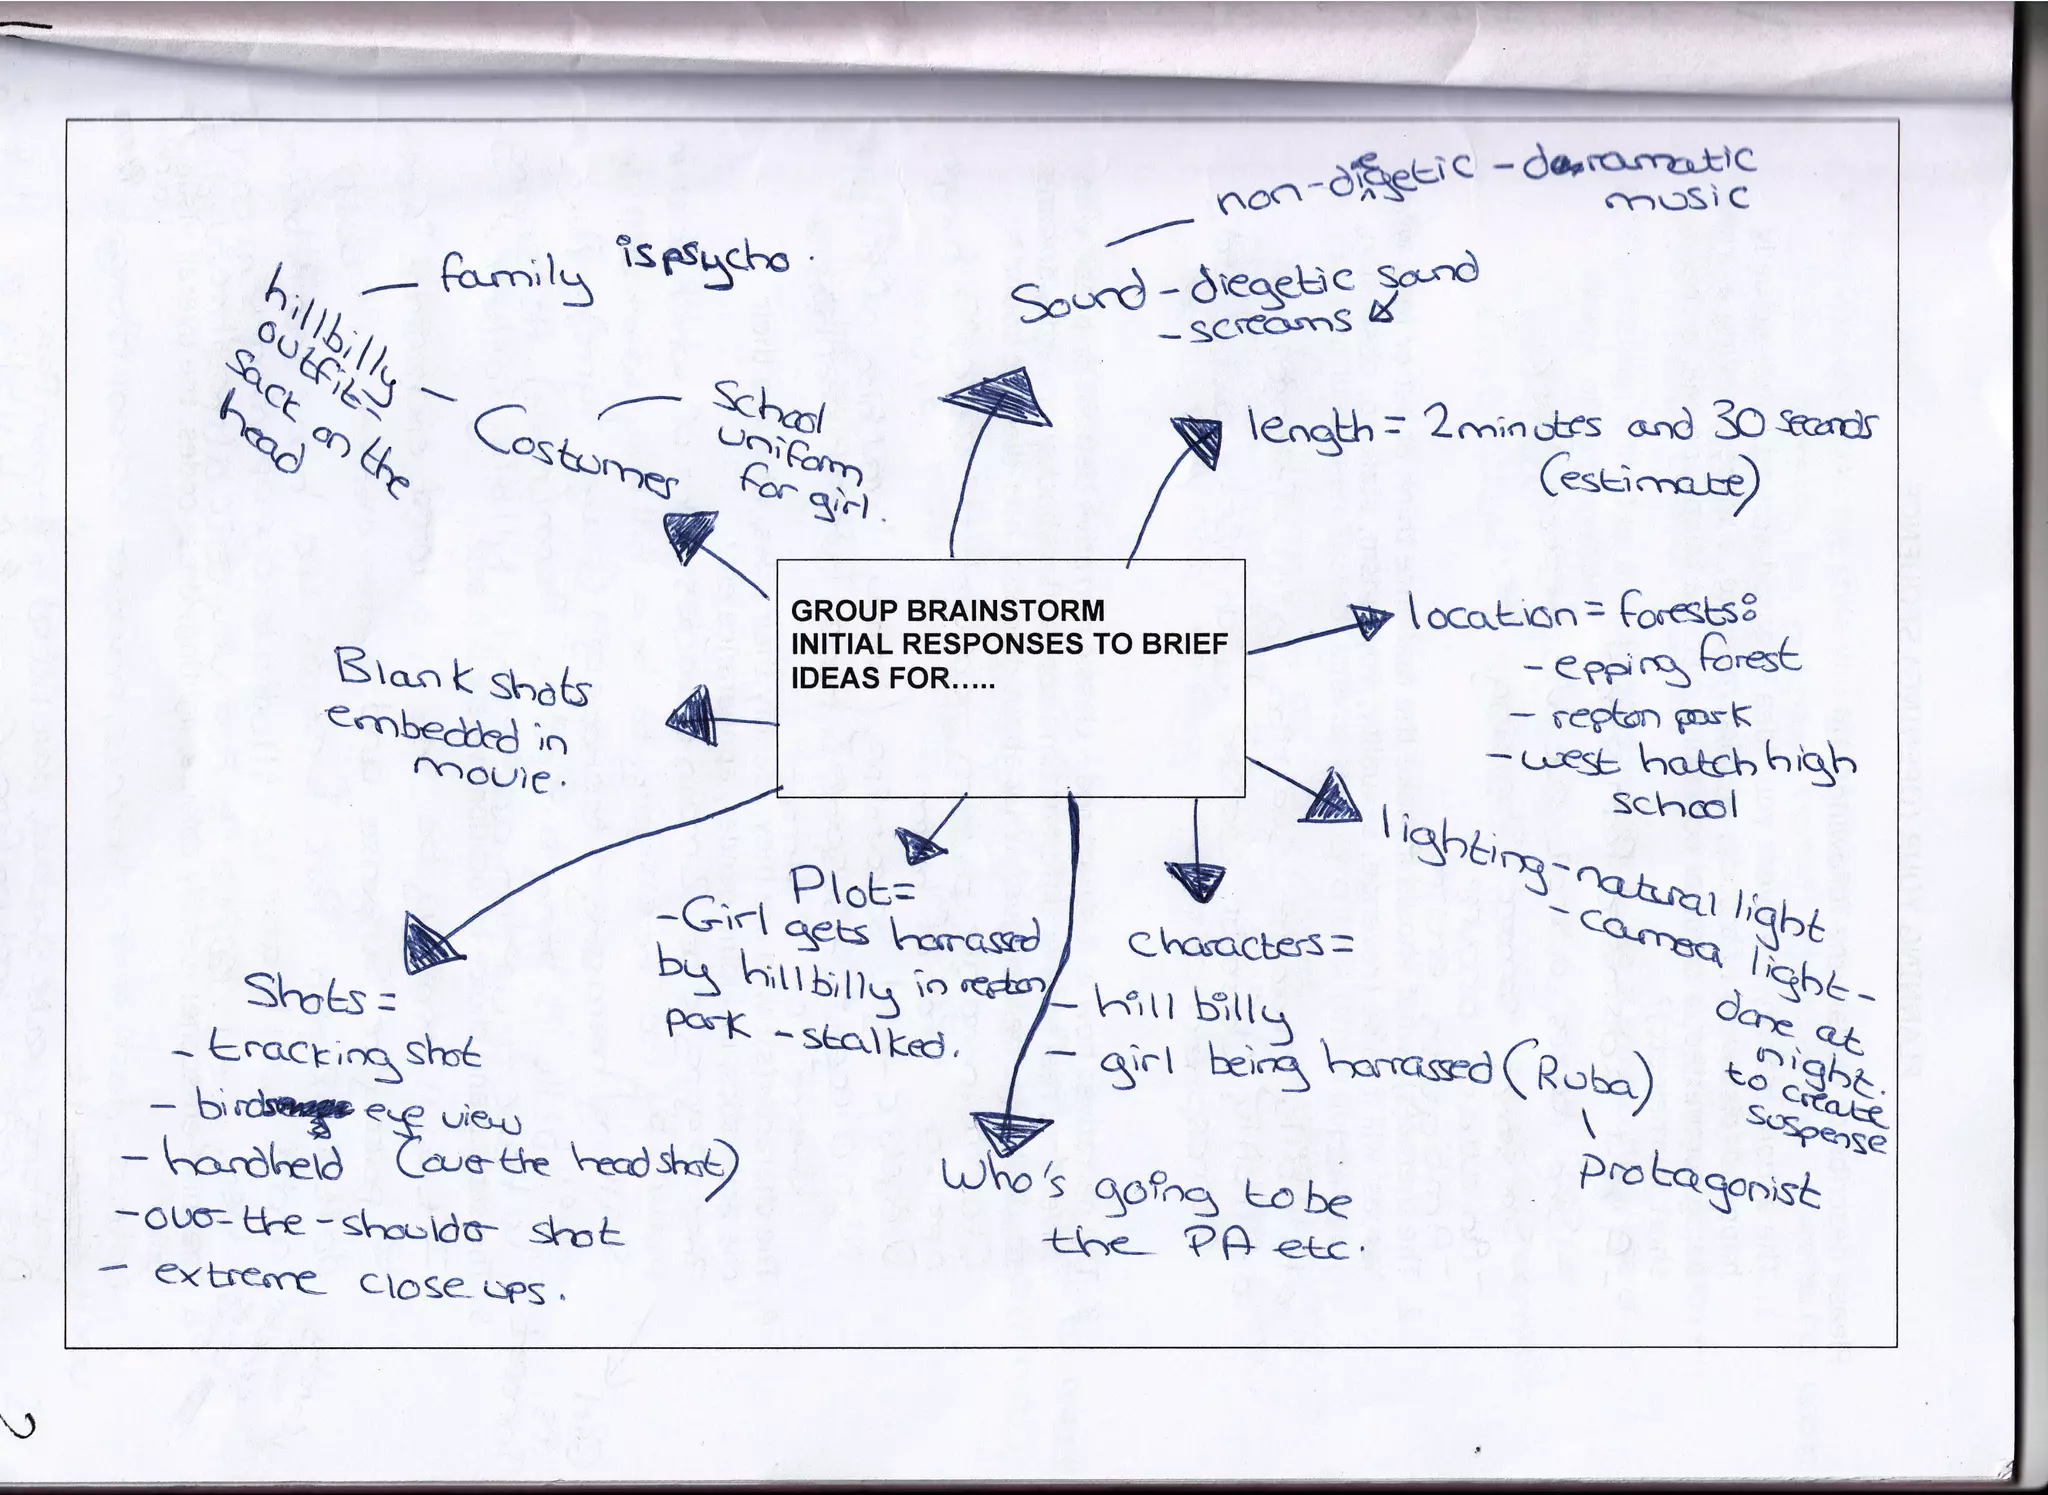 non-diegetic - daramatic
music
Sound - diegetic sound
- screams
family is psycho.
hillbilly
outfit=
sack on the
head
Costumes
School
uniform
for girl.
length = 2 minutes and 30 seconds
(estimate)
GROUP BRAINSTORM
INITIAL RESPONSES TO BRIEF
IDEAS FOR…..
location = forests:
- epping forest
- repton park
- west hatch high
school
Blank shots
embedded in
movie.
lighting - natural light
- camera light -
done at
night.
to create
suspense
Plot =
- Girl gets harrassed
by hillbilly in repton
park - stalked.
characters =
- hill billy
- girl being harrassed (Ruba)
protagonist
Shots =
- tracking shot
- birds eye view
- handheld (over the head shot)
- over-the-shoulder shot
- extreme close ups.
Who's going to be
the PA etc.
2